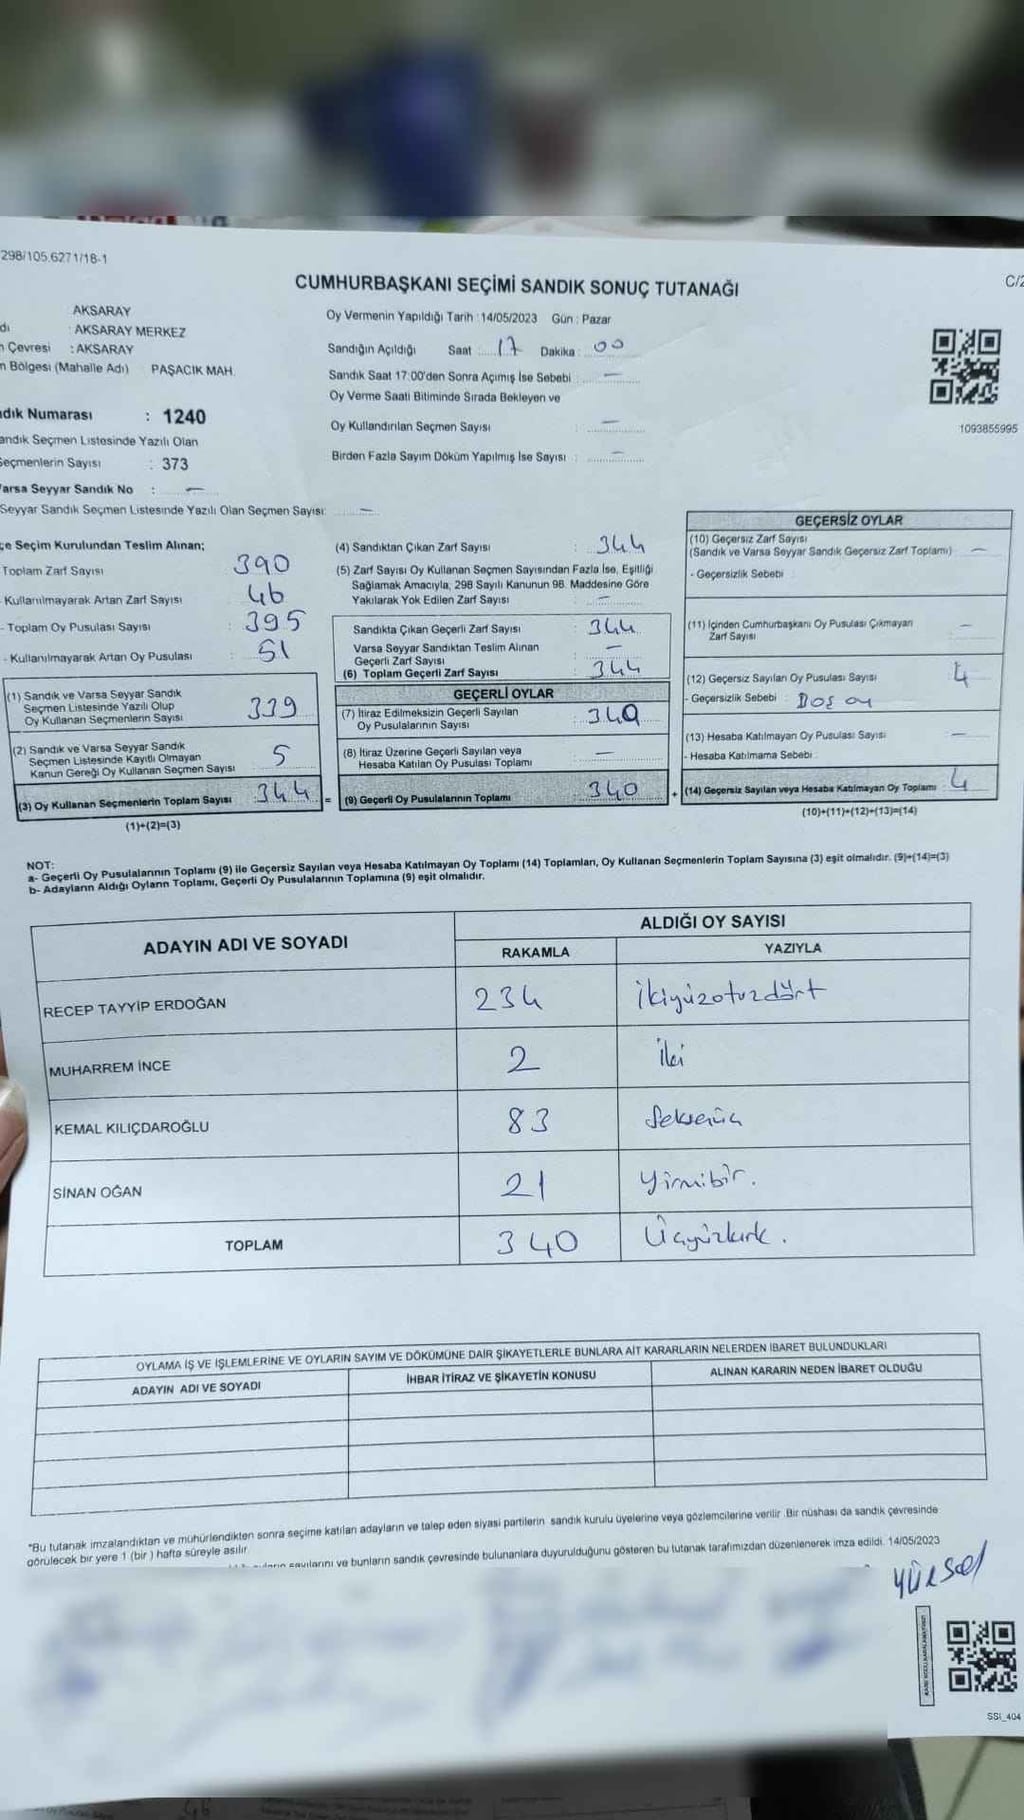 298/105.6271/18-1
CUMHURBAŞKANI SEÇİMİ SANDIK SONUÇ TUTANAĞI
C/2
AKSARAY
dı : AKSARAY MERKEZ
n Çevresi : AKSARAY
n Bölgesi (Mahalle Adı) PAŞACIK MAH.
ndık Numarası : 1240
andık Seçmen Listesinde Yazılı Olan
Seçmenlerin Sayısı : 373
Varsa Seyyar Sandık No : —
Seyyar Sandık Seçmen Listesinde Yazılı Olan Seçmen Sayısı: —
Oy Vermenin Yapıldığı Tarih : 14/05/2023 Gün : Pazar
Sandığın Açıldığı Saat : 17 Dakika : 00
Sandık Saat 17:00'den Sonra Açımış İse Sebebi : —
Oy Verme Saati Bitiminde Sırada Bekleyen ve
Oy Kullandırılan Seçmen Sayısı : —
Birden Fazla Sayım Döküm Yapılmış İse Sayısı : —
1093855995
çe Seçim Kurulundan Teslim Alınan;
Toplam Zarf Sayısı : 390
Kullanılmayarak Artan Zarf Sayısı : 46
- Toplam Oy Pusulası Sayısı : 395
- Kullanılmayarak Artan Oy Pusulası : 51
(1) Sandık ve Varsa Seyyar Sandık
Seçmen Listesinde Yazılı Olup
Oy Kullanan Seçmenlerin Sayısı : 339
(2) Sandık ve Varsa Seyyar Sandık
Seçmen Listesinde Kayıtlı Olmayan
Kanun Gereği Oy Kullanan Seçmen Sayısı : 5
(3) Oy Kullanan Seçmenlerin Toplam Sayısı : 344 =
(1)+(2)=(3)
(4) Sandıktan Çıkan Zarf Sayısı : 344
(5) Zarf Sayısı Oy Kullanan Seçmen Sayısından Fazla İse, Eşitliği
Sağlamak Amacıyla, 298 Sayılı Kanunun 98. Maddesine Göre
Yakılarak Yok Edilen Zarf Sayısı : —
Sandıkta Çıkan Geçerli Zarf Sayısı : 344
Varsa Seyyar Sandıktan Teslim Alınan
Geçerli Zarf Sayısı : —
(6) Toplam Geçerli Zarf Sayısı : 344
GEÇERLİ OYLAR
(7) İtiraz Edilmeksizin Geçerli Sayılan
Oy Pusulalarının Sayısı : 340
(8) İtiraz Üzerine Geçerli Sayılan veya
Hesaba Katılan Oy Pusulası Toplamı : —
(9) Geçerli Oy Pusulalarının Toplamı : 340 +
GEÇERSİZ OYLAR
(10) Geçersiz Zarf Sayısı
(Sandık ve Varsa Seyyar Sandık Geçersiz Zarf Toplamı) : —
- Geçersizlik Sebebi :
(11) İçinden Cumhurbaşkanı Oy Pusulası Çıkmayan
Zarf Sayısı : —
(12) Geçersiz Sayılan Oy Pusulası Sayısı : 4
- Geçersizlik Sebebi : Boş oy
(13) Hesaba Katılmayan Oy Pusulası Sayısı : —
- Hesaba Katılmama Sebebi :
(14) Geçersiz Sayılan veya Hesaba Katılmayan Oy Toplamı : 4
(10)+(11)+(12)+(13)=(14)
NOT:
a- Geçerli Oy Pusulalarının Toplamı (9) ile Geçersiz Sayılan veya Hesaba Katılmayan Oy Toplamı (14) Toplamları, Oy Kullanan Seçmenlerin Toplam Sayısına (3) eşit olmalıdır. (9)+(14)=(3)
b- Adayların Aldığı Oyların Toplamı, Geçerli Oy Pusulalarının Toplamına (9) eşit olmalıdır.
ADAYIN ADI VE SOYADI ALDIĞI OY SAYISI
RAKAMLA YAZIYLA
RECEP TAYYİP ERDOĞAN 234 İkiyüzotuzdört
MUHARREM İNCE 2 İki
KEMAL KILIÇDAROĞLU 83 Seksenüç
SİNAN OĞAN 21 Yirmibir.
TOPLAM 340 Üçyüzkırk.
OYLAMA İŞ VE İŞLEMLERİNE VE OYLARIN SAYIM VE DÖKÜMÜNE DAİR ŞİKAYETLERLE BUNLARA AİT KARARLARIN NELERDEN İBARET BULUNDUKLARI
ADAYIN ADI VE SOYADI İHBAR İTİRAZ VE ŞİKAYETİN KONUSU ALINAN KARARIN NEDEN İBARET OLDUĞU
"Bu tutanak imzalandıktan ve mühürlendikten sonra seçime katılan adayların ve talep eden siyasi partilerin sandık kurulu üyelerine veya gözlemcilerine verilir. Bir nüshası da sandık çevresinde
görülecek bir yere 1 (bir) hafta süreyle asılır.
sayılarını ve bunların sandık çevresinde bulunanlara duyurulduğunu gösteren bu tutanak tarafımızdan düzenlenerek imza edildi. 14/05/2023
YÜKSEL
SSI_404
46